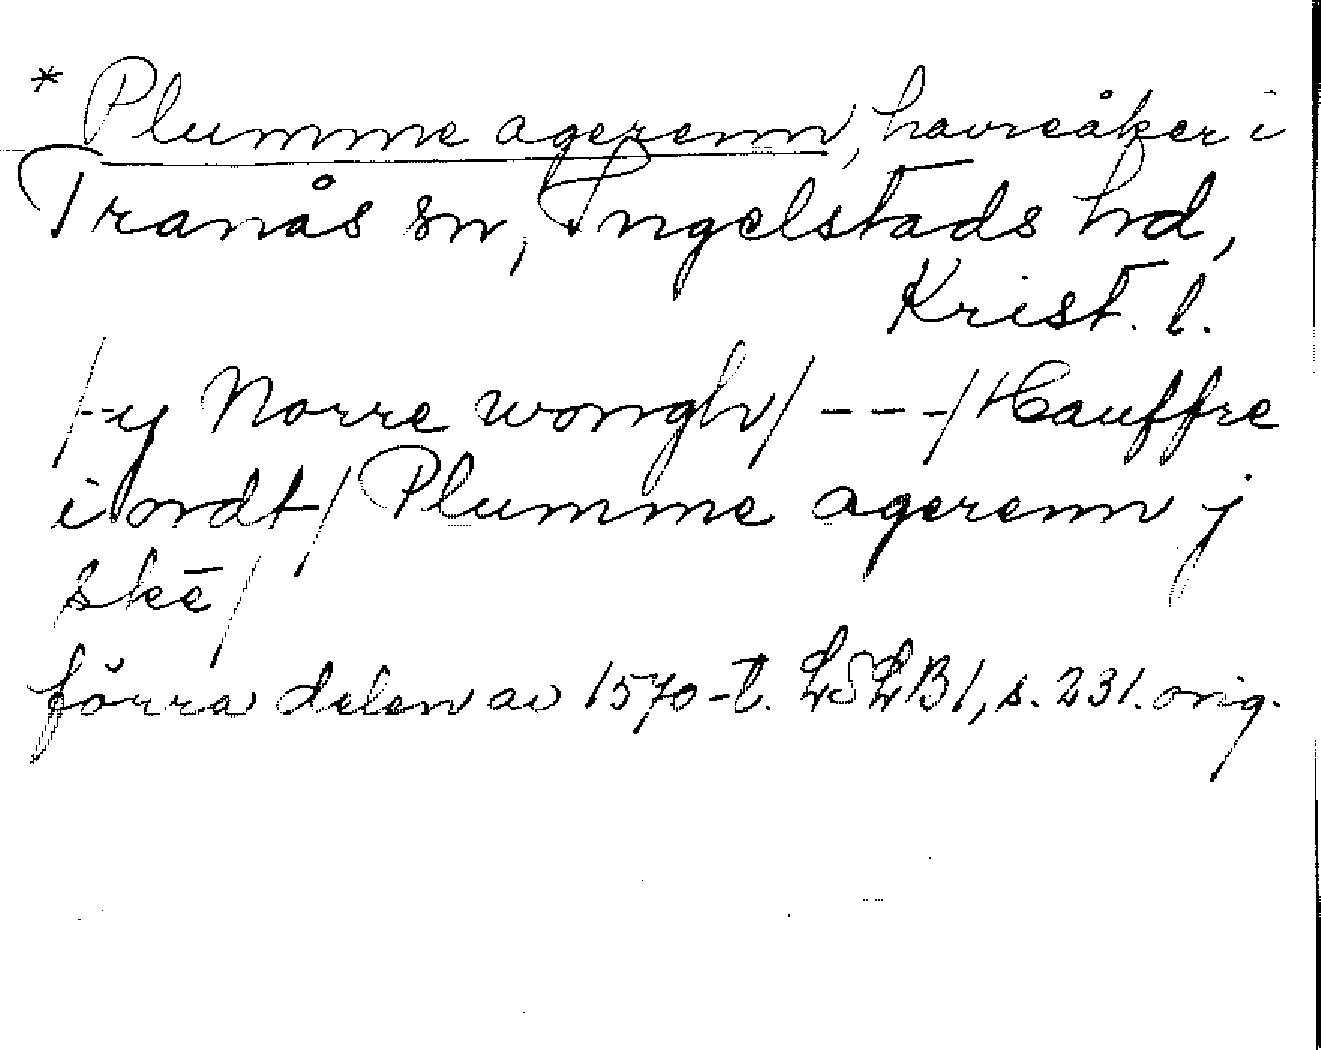 * Plumme agerenn, havreåker i
Tranås sn, Ingelstads hd,
Krist. l.
/-y Norre wongh/ ---/Hauffre
iordt/ Plumme agerenn j
skē/
förra delen av 1570-t. LSLB1, s. 231. orig.